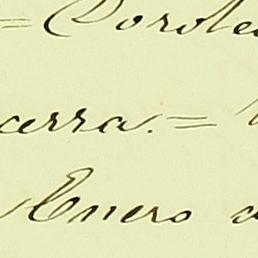 = Dorote
cerra. =
Enero